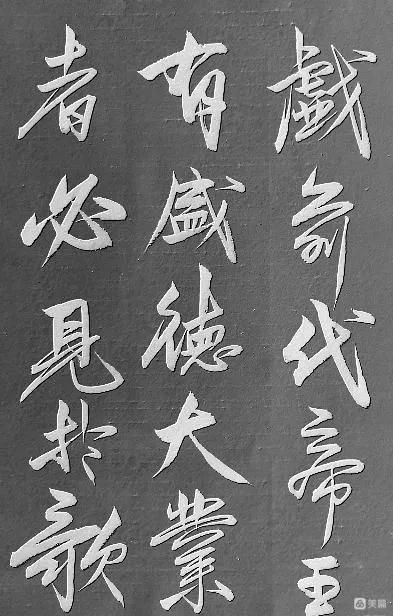 戲前代帝王
有盛德大業
者必見於歌
美篇